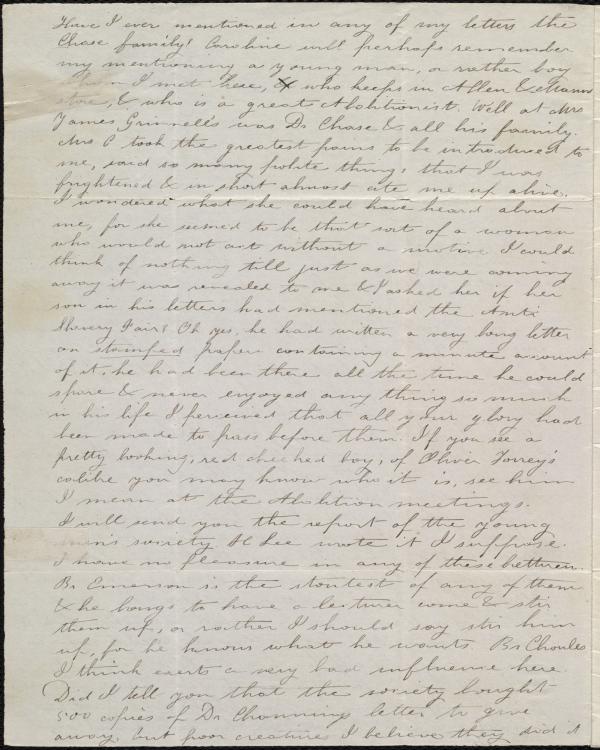 Have I ever mentioned in any of my letters the
Chase family? Caroline will perhaps remember
my mentioning a young man, or rather boy
whom I met here, & who keeps in Allen & Manns
store, & who is a great Abolitionist. Well at Mrs
James Grinnell's was Dr Chase & all his family.
Mrs C took the greatest pains to be introduced to
me, said so many polite things that I was
frightened & in short almost ate me up alive.
I wondered what she could have heard about
me, for she seemed to be that sort of a woman
who would not act without a motive I could
think of nothing till just as we were coming
away it was revealed to me & I asked her if her
son in his letters had mentioned the Anti
Slavery Fair? Oh yes, he had written a very long letter
on stamped paper containing a minute account
of it, he had been there all the time he could
spare & never enjoyed any thing so much
in his life I perceived that all your glory had
been made to pass before them. If you see a
pretty looking, red cheeked boy, of Oliver Torrey's
calibre you may know who it is, see him
I mean at the Abolition meetings.
I will send you the report of the young
men's society H Lee wrote it I suppose.
I have no pleasure in any of these brethren.
Br Emerson is the stoutest of any of them
& he longs to have a lecturer come & stir
them up, or rather I should say stir him
up, for he knows what he wants. Br Choules
I think exerts a very bad influence here.
Did I tell you that the society bought
500 copies of Dr Channing's letter to give
away, but poor creatures I believe they did it